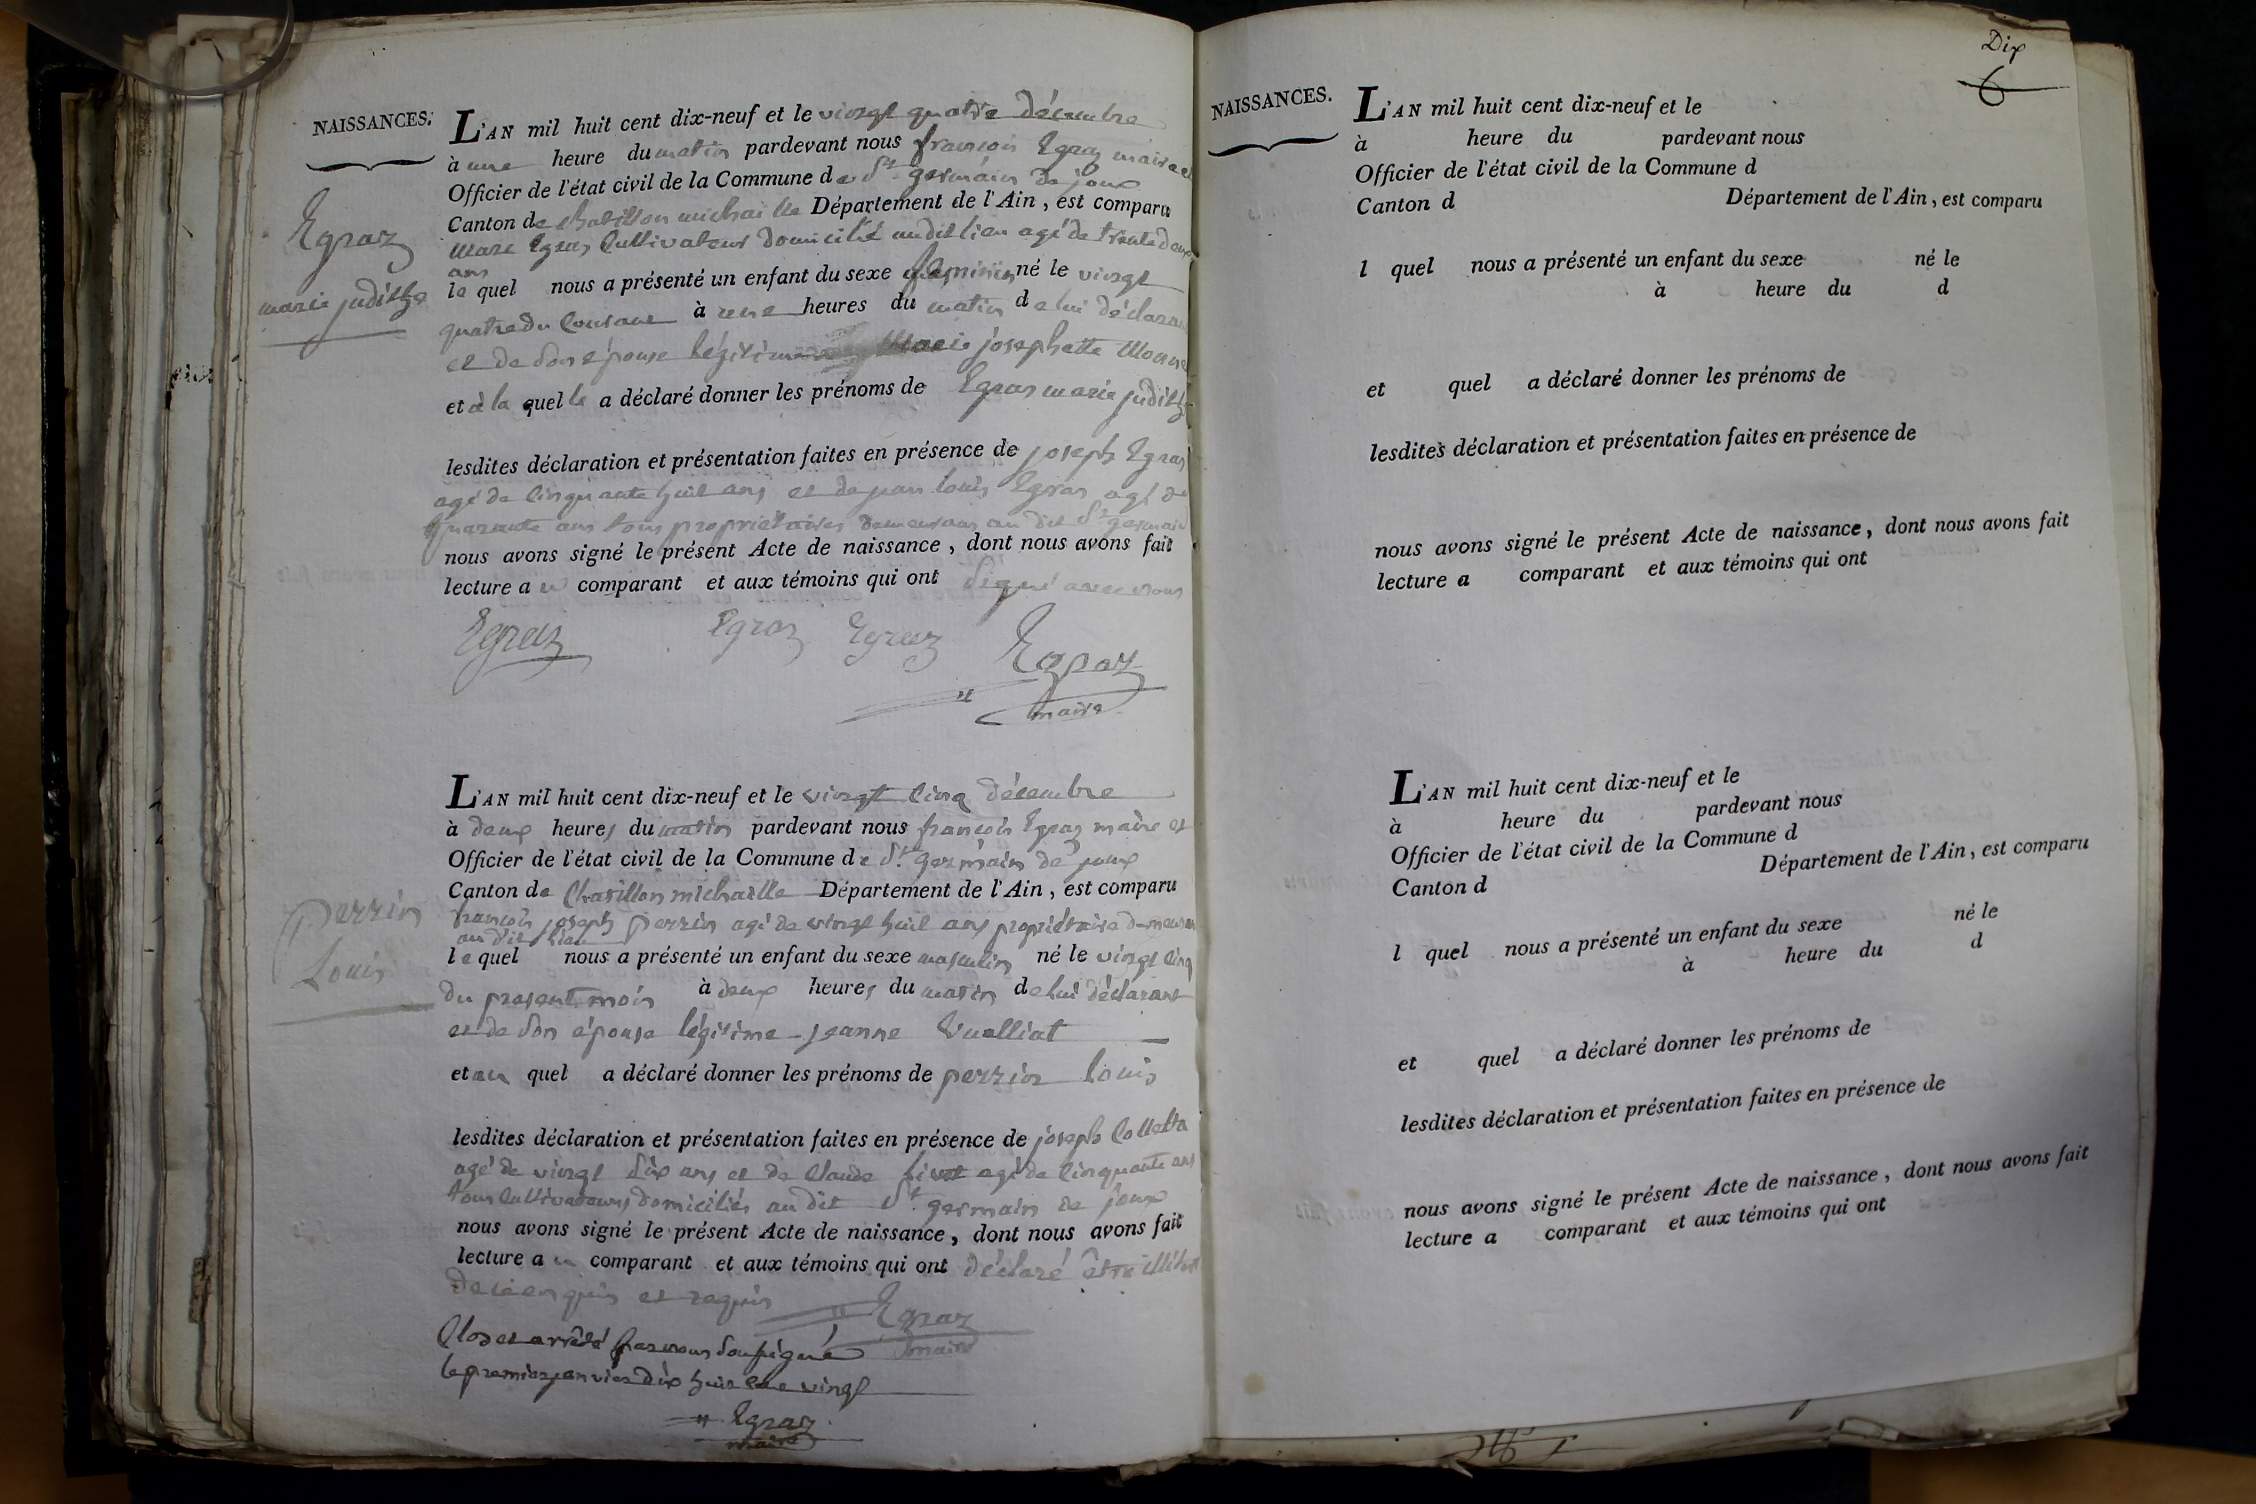 NAISSANCES.
Egraz
marie judith
L'AN mil huit cent dix-neuf et le vingt quatre décembre
à une heure du matin pardevant nous françois Egraz maire et
Officier de l'état civil de la Commune de St germain de joux
Canton de chatillon michaille Département de l'Ain, est comparu
marc Egraz Cultivateur domicilié audit lieu agé de trente deux
ans
le quel nous a présenté un enfant du sexe féminin né le vingt
quatre du Courant à une heures du matin de lui déclarant
et de son épouse légitime Marie josephette
et à la quelle a déclaré donner les prénoms de Egraz marie judith
lesdites déclaration et présentation faites en présence de joseph Egraz
agé de Cinquante huit ans et de jean louis Egraz agé de
quarante ans tous propriétaires demeurans au dit St germain
nous avons signé le présent Acte de naissance, dont nous avons fait
lecture au comparant et aux témoins qui ont signé avec nous
Egraz Egraz Egraz Egraz
maire
Perrin
Louis
L'AN mil huit cent dix-neuf et le vingt Cinq décembre
à deux heures du matin pardevant nous françois Egraz maire et
Officier de l'état civil de la Commune de St germain de joux
Canton de Chatillon michaille Département de l'Ain, est comparu
françois joseph perrin agé de vingt huit ans propriétaire demeurant
au dit lieu
le quel nous a présenté un enfant du sexe masculin né le vingt Cinq
du present mois à deux heures du matin de lui déclarant
et de son épouse légitime jeanne Vualliat
et au quel a déclaré donner les prénoms de perrin louis
lesdites déclaration et présentation faites en présence de joseph Colletta
agé de vingt six ans et de Claude agé de Cinquante ans
tous Cultivateurs domiciliés au dit St germain de joux
nous avons signé le présent Acte de naissance, dont nous avons fait
lecture au comparant et aux témoins qui ont déclaré être illitérés
de ce enquis et requis Egraz
maire
Clos et arrêté par nous soussigné
le premier janvier dix huit cent vingt
Egraz
maire
Dix
6
NAISSANCES.
L'AN mil huit cent dix-neuf et le
à heure du pardevant nous
Officier de l'état civil de la Commune d
Canton d Département de l'Ain, est comparu
l quel nous a présenté un enfant du sexe né le
à heure du d
et quel a déclaré donner les prénoms de
lesdites déclaration et présentation faites en présence de
nous avons signé le présent Acte de naissance, dont nous avons fait
lecture a comparant et aux témoins qui ont
L'AN mil huit cent dix-neuf et le
à heure du pardevant nous
Officier de l'état civil de la Commune d
Canton d Département de l'Ain, est comparu
l quel nous a présenté un enfant du sexe né le
à heure du d
et quel a déclaré donner les prénoms de
lesdites déclaration et présentation faites en présence de
nous avons signé le présent Acte de naissance, dont nous avons fait
lecture a comparant et aux témoins qui ont